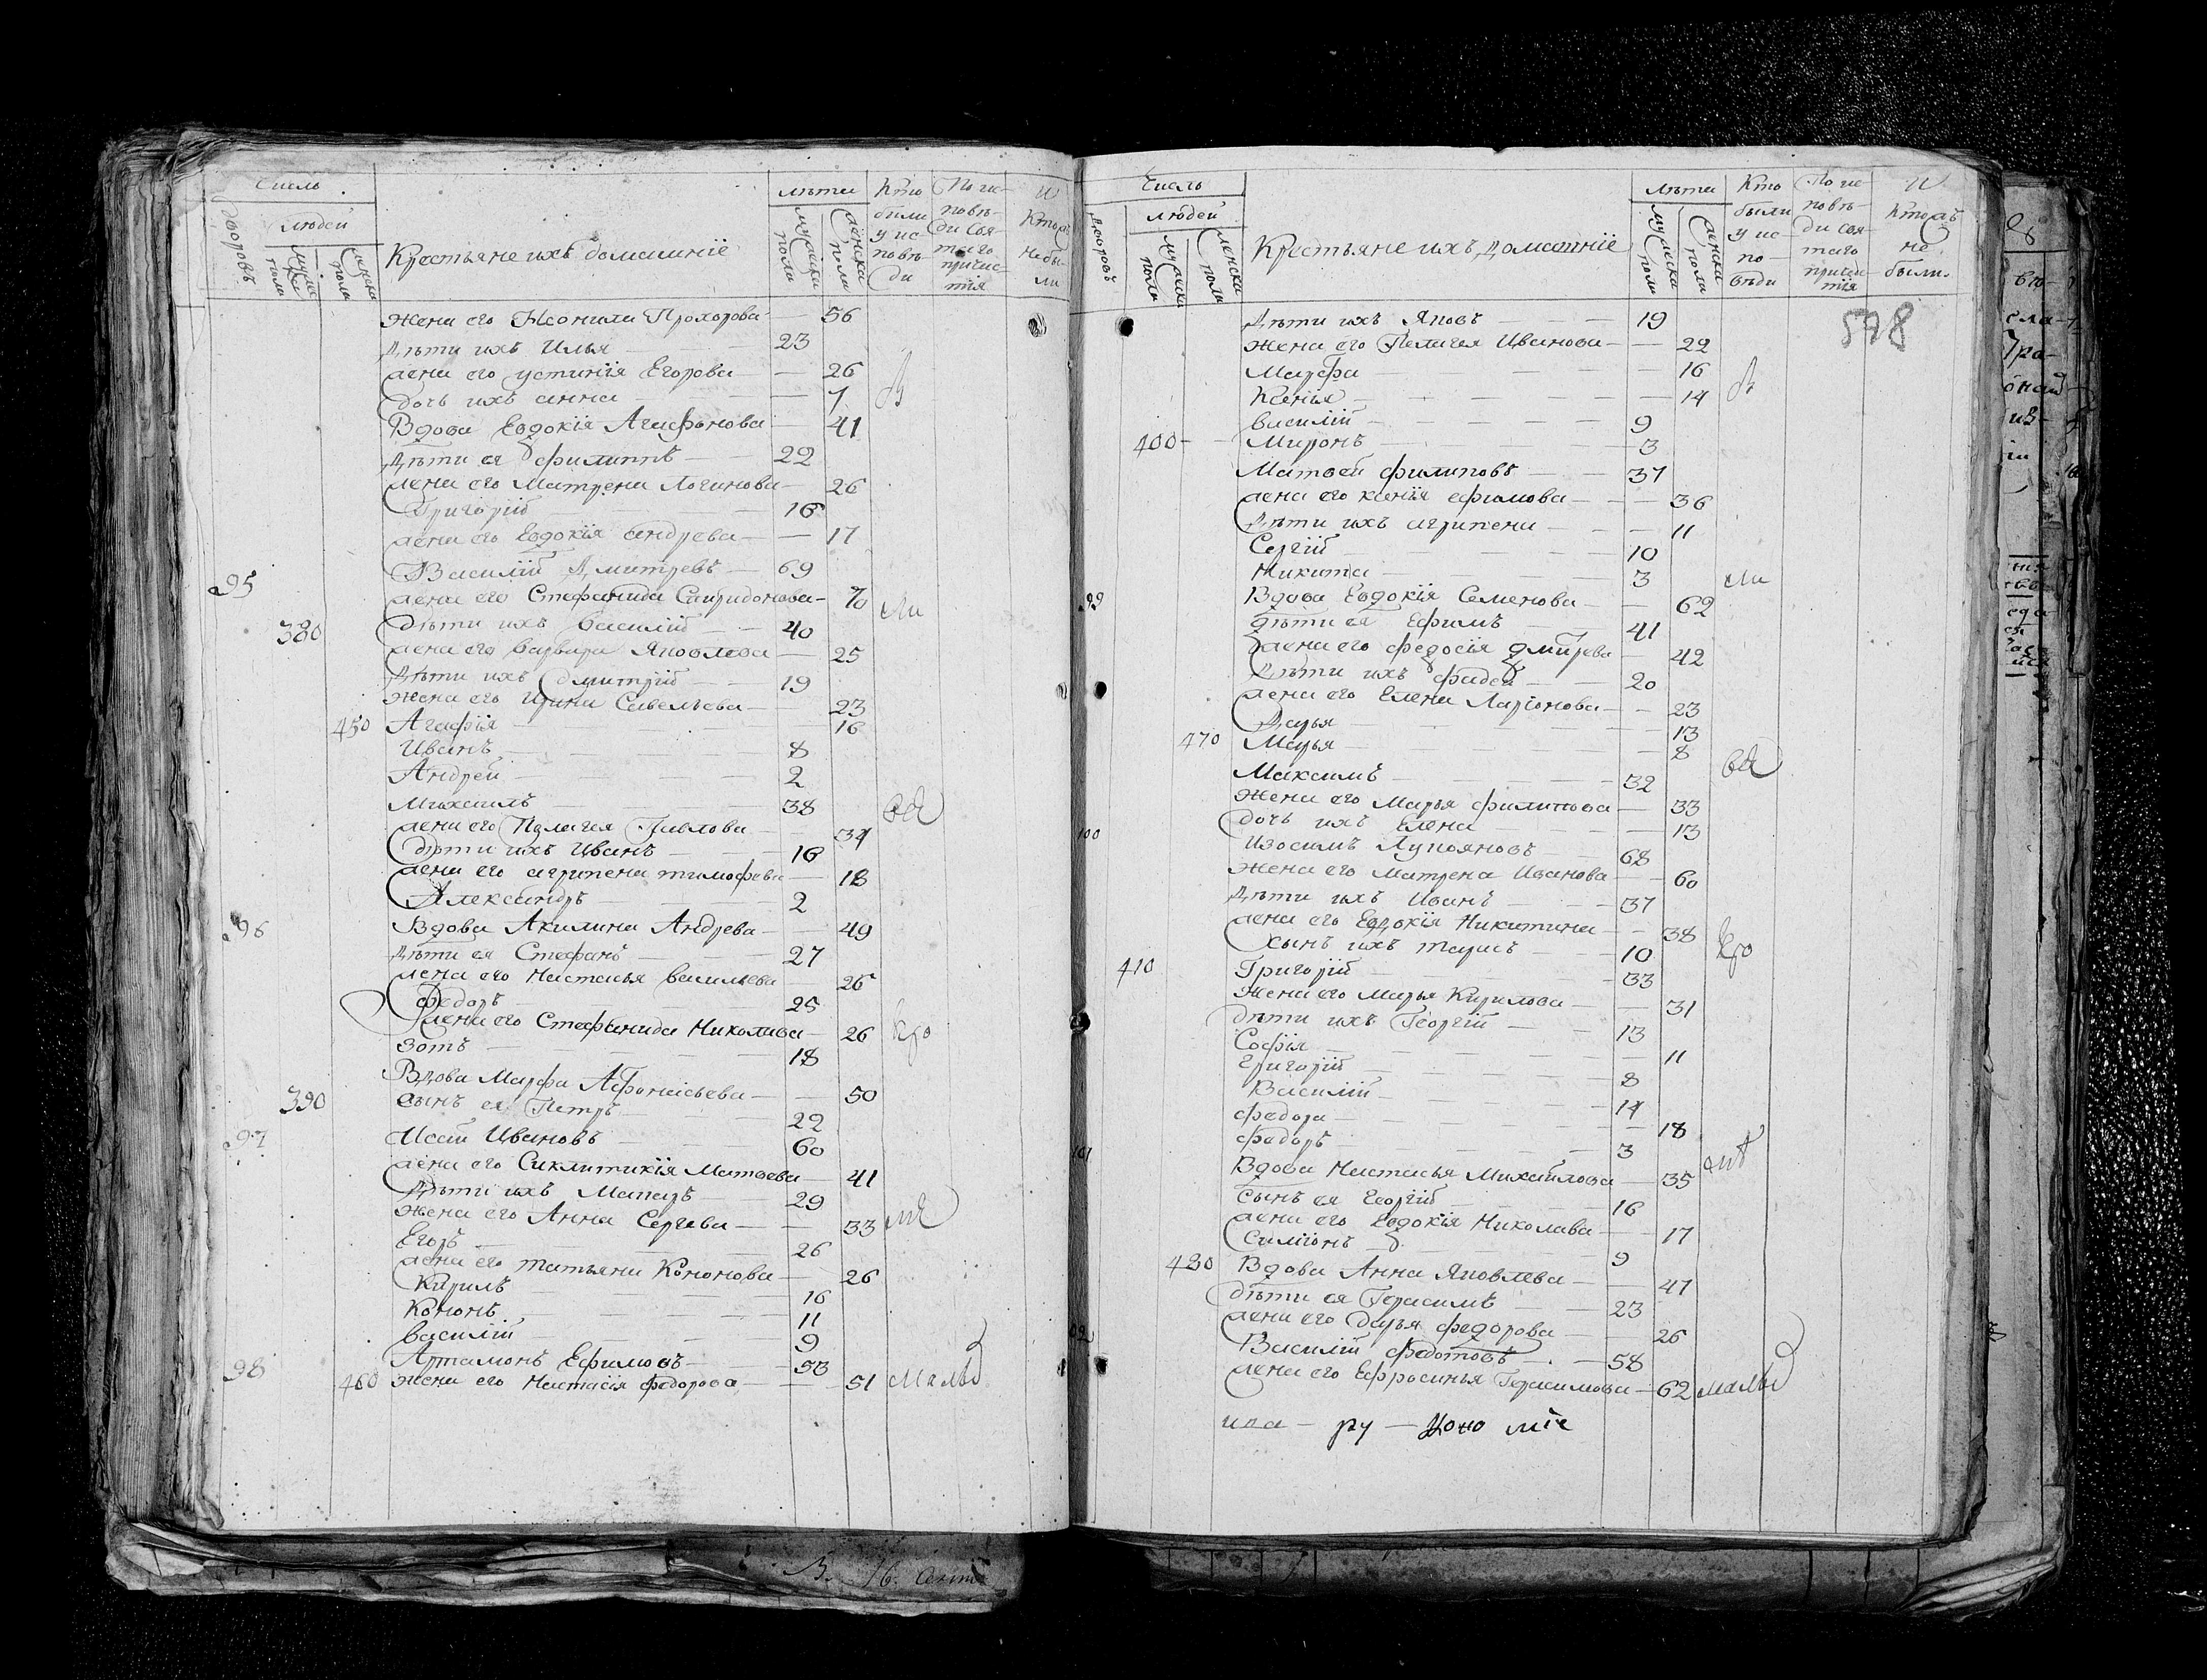 Число
дворовъ
людей
мужеска пола
женска пола
Крестьяне ихъ домашнїе
лѣта
мужеска пола
женска пола
Кто были у исповѣди
По исповѣди святаго причастїя
И Кторъ не были
жена его Неонила Прохорова — 56
Дѣти ихъ Илья — 23
жена его устинїя Егорова — 26
дочь ихъ анна — 1
Вдова Евдокїя Агафонова — 41
Дѣти ея филиппъ — 22
жена его Матрена Логинова — 26
Григорїй — 18
жена его Евдокїя андрева — 17
95 Василїй Дмитревъ — 69
жена его Стефанида Спиридонова — 70 ли
380 Дѣти ихъ василїй — 40
жена его варвара Яковлева — 25
Дѣти ихъ дмитрїй — 19
жена его Ирина Савельева — 23
450 Агафїя — 16
Иванъ — 8
Андрей — 2
Михаилъ — 38
жена его Пелагея Павлова — 34
дѣти ихъ Иванъ — 18
жена его агрипена тимофева — 18
Александръ — 2
96 Вдова Акилина Андрева — 49
Дѣти ея Стефанъ — 27
жена его Настасья васильева — 26
федоръ — 25
жена его Стефанида Николава — 26
Зотъ — 18
Вдова Марфа Афонасьева — 50
390 сынъ ея Петръ — 22
97 Исай Ивановъ — 60
жена его Сиклитикїя Матвева — 41
Дѣти ихъ Макаръ — 29
жена его Анна Сергева — 33
Егоръ — 26
жена его татьяна Кононова — 26
Кирилъ — 16
Кононъ — 11
василїй — 9
98 Артамонъ Ефимовъ — 53
460 жена его Настасїя федорова — 51
Число
дворовъ
людей
мужеска пола
женска пола
Крестьяне ихъ Домашнїе
Лѣта
мужеска пола
женска пола
Кто были у исповѣди
По исповѣди святаго причастїя
И Кторъ не были
578
Дѣти ихъ Яковъ — 19
жена его Пелагея Иванова — 22
Марфа — 16
Ксенїя — 14
василїй — 9
400 Миронъ — 3
Матвей филиповъ — 37
жена его ксенїя ефимова — 36
Дѣти ихъ агрипена — 11
Сергїй — 10
Никита — 3
99 Вдова Евдокїя Семенова — 62
дѣти ея Ефимъ — 41
жена его федосїя дмитрева — 42
Дѣти ихъ фадей — 20
жена его Елена Ларїонова — 23
Дарья — 13
470 Марья — 8
Максимъ — 32
жена его Марья филипова — 33
дочь ихъ Елена — 13
100 Изосимъ Лукояновъ — 68
жена его матрена Иванова — 60
Дѣти ихъ Иванъ — 37
жена его Евдокїя Никитина — 38
сынъ ихъ тарасъ — 10
410 Григорїй — 33
жена его Марья Кирилова — 31
дѣти ихъ Георгїй — 13
Софїя — 11
Григорїй — 8
Василїй — 14
федора — 18
федоръ — 3
101 Вдова Настасья Михайлова — 35
сынъ ея Георгїй — 16
жена его Евдокїя Николава — 17
Симїонъ — 9
480 Вдова Анна Яковлева — 47
дѣти ея Герасимъ — 23
жена его Дарья федорова — 26
Василїй федотовъ — 58
жена его Ефросинья Герасимова — 62